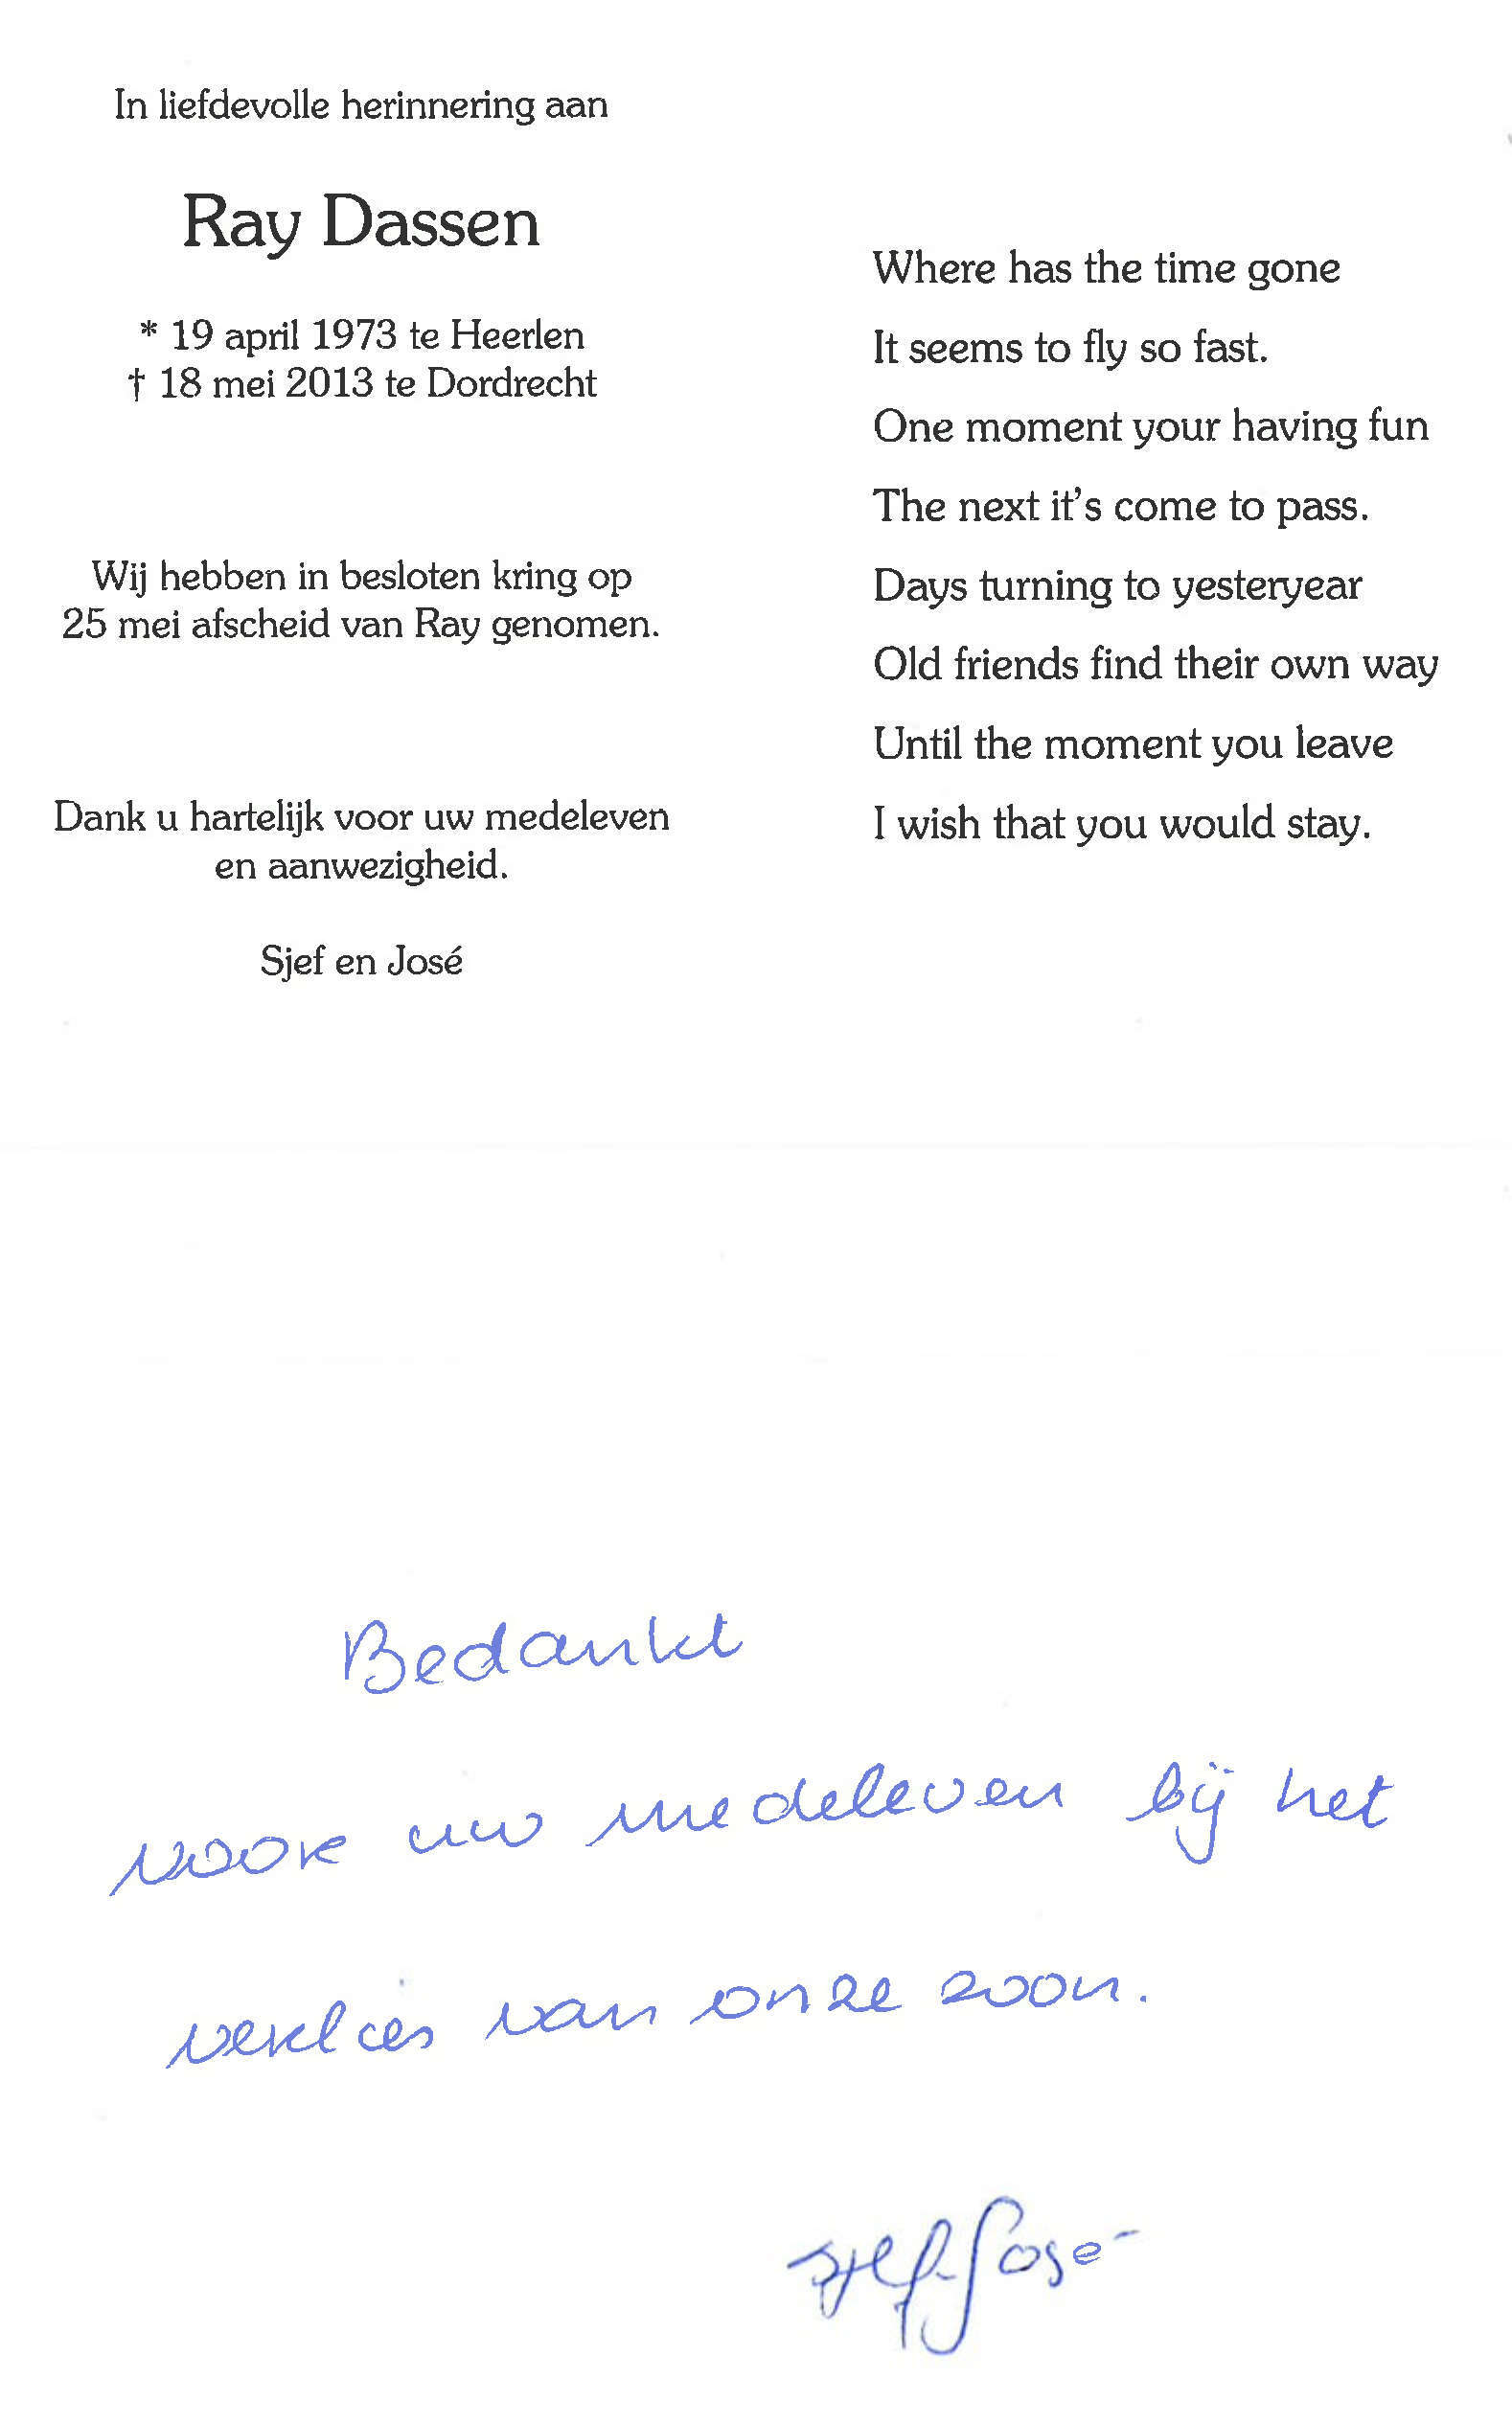 In liefdevolle herinnering aan
Ray Dassen
* 19 april 1973 te Heerlen
† 18 mei 2013 te Dordrecht
Wij hebben in besloten kring op
25 mei afscheid van Ray genomen.
Dank u hartelijk voor uw medeleven
en aanwezigheid.
Sjef en José
Where has the time gone
It seems to fly so fast.
One moment your having fun
The next it's come to pass.
Days turning to yesteryear
Old friends find their own way
Until the moment you leave
I wish that you would stay.
Bedankt
voor uw medeleven bij het
verlies van onze zoon.
Sjef-José